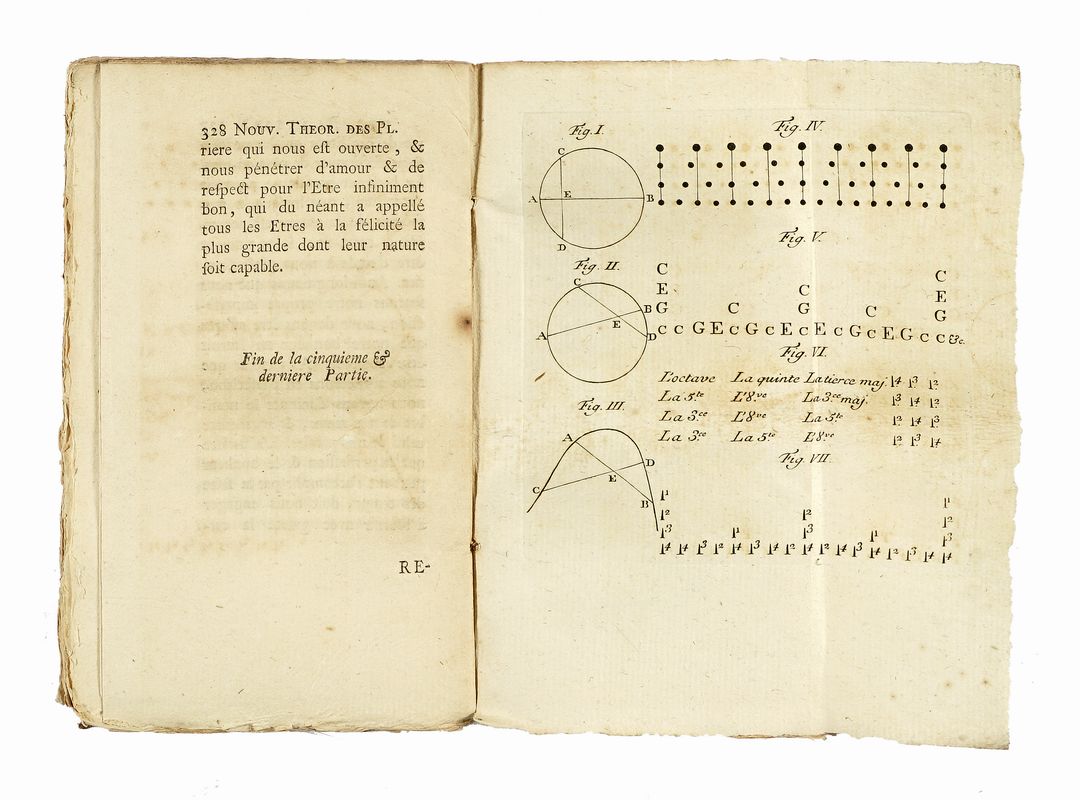 328 Nouv. Theor. des Pl.
riere qui nous eſt ouverte, &
nous pénétrer d'amour & de
reſpect pour l'Etre infiniment
bon, qui du néant a appellé
tous les Etres à la félicité la
plus grande dont leur nature
ſoit capable.
Fin de la cinquieme &
derniere Partie.
RE-
Fig. I.
C
A E B
D
Fig. II.
C
B
A E D
Fig. III.
A
D
E
C
B
Fig. IV.
Fig. V.
C C
E C E
G C G C G
C C G E C G C E C E C G C E G C C &c.
Fig. VI.
L'octave La quinte La tierce maj. 14 13 12
La 5te L'8ve La 3ce maj. 13 14 12
La 3ce L'8ve La 5te 12 14 13
La 3ce La 5te L'8ve 12 13 14
Fig. VII.
11 11
12 12 12
13 11 13 11 13
14 14 13 12 14 13 14 12 14 12 14 13 14 12 13 14 14